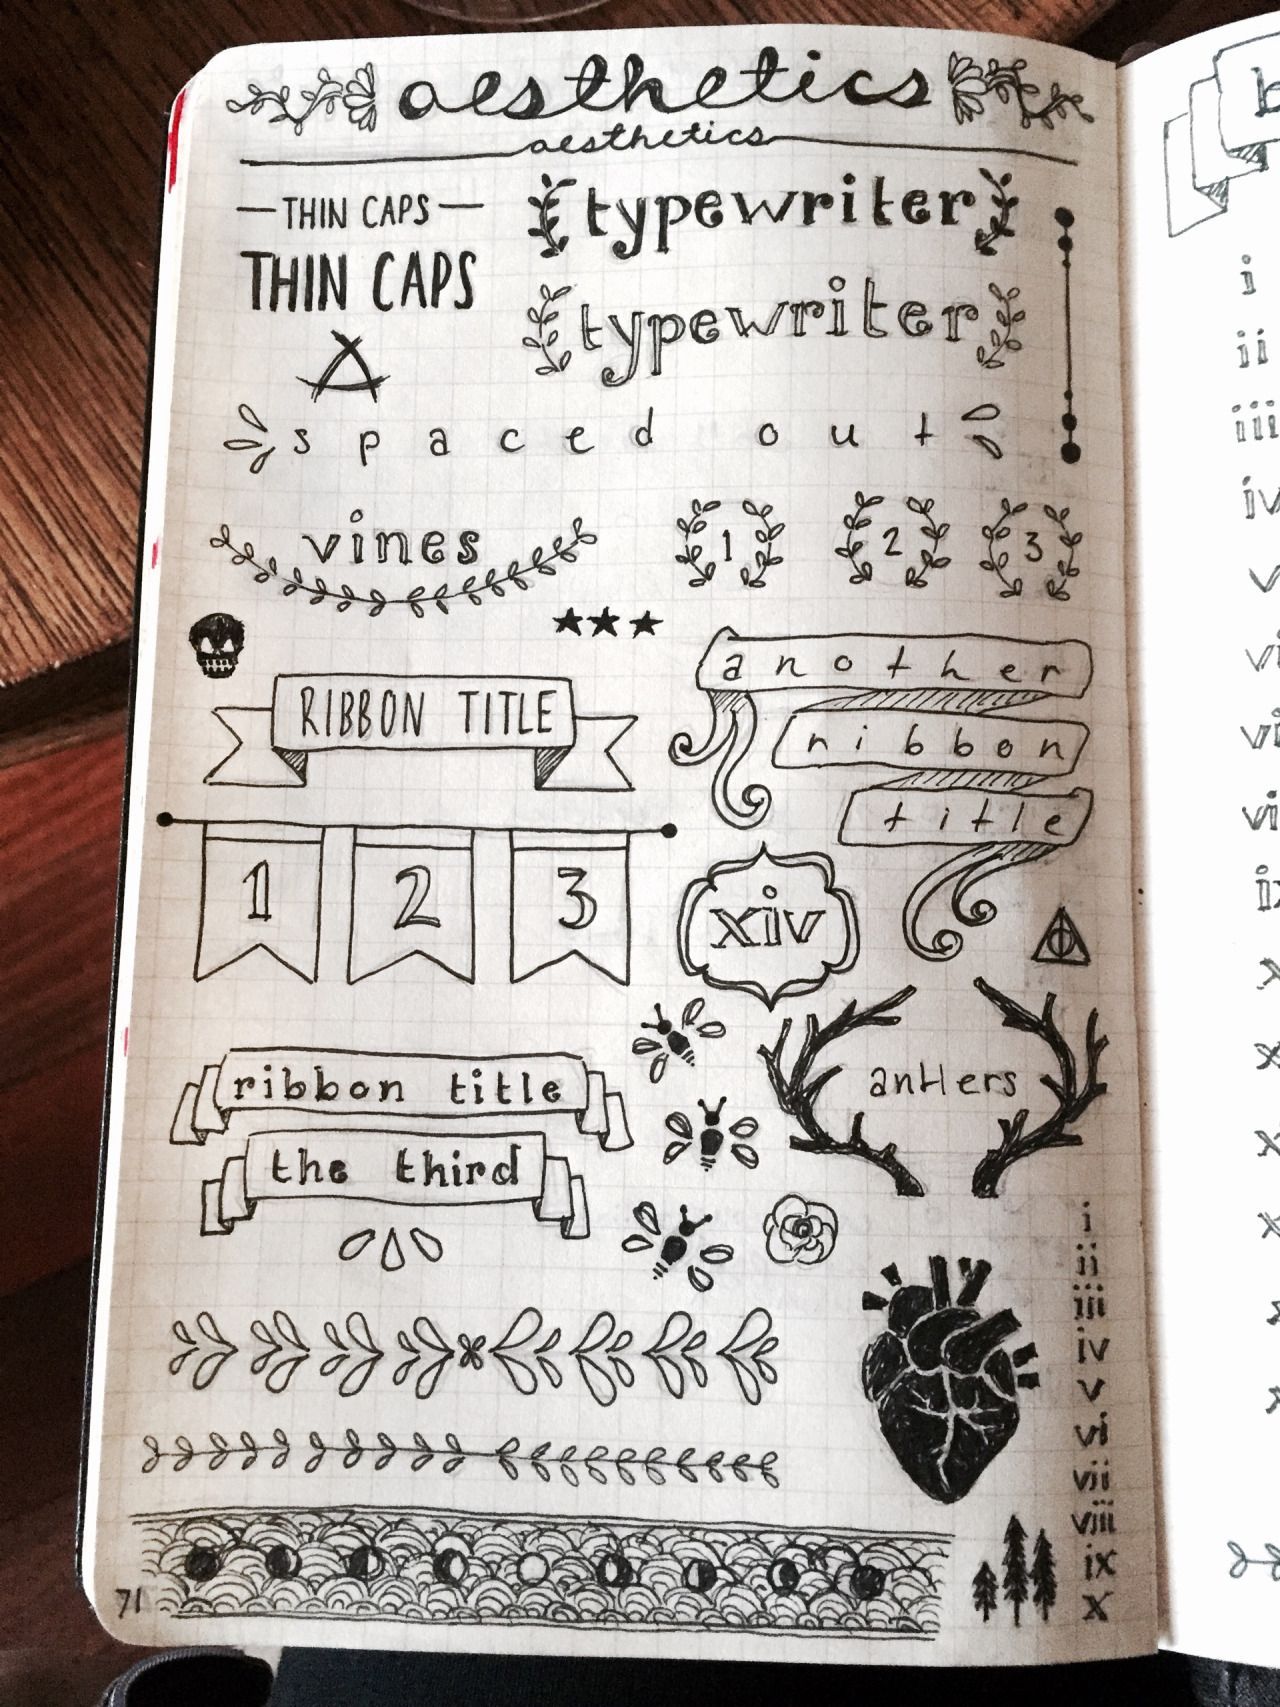 aesthetics
aesthetics
—THIN CAPS—
THIN CAPS
typewriter
typewriter
A
spaced out
vines
1 2 3
RIBBON TITLE
another
ribbon
title
1 2 3
xiv
antlers
ribbon title
the third
i
ii
iii
iv
v
vi
vii
viii
ix
x
71
i
ii
iii